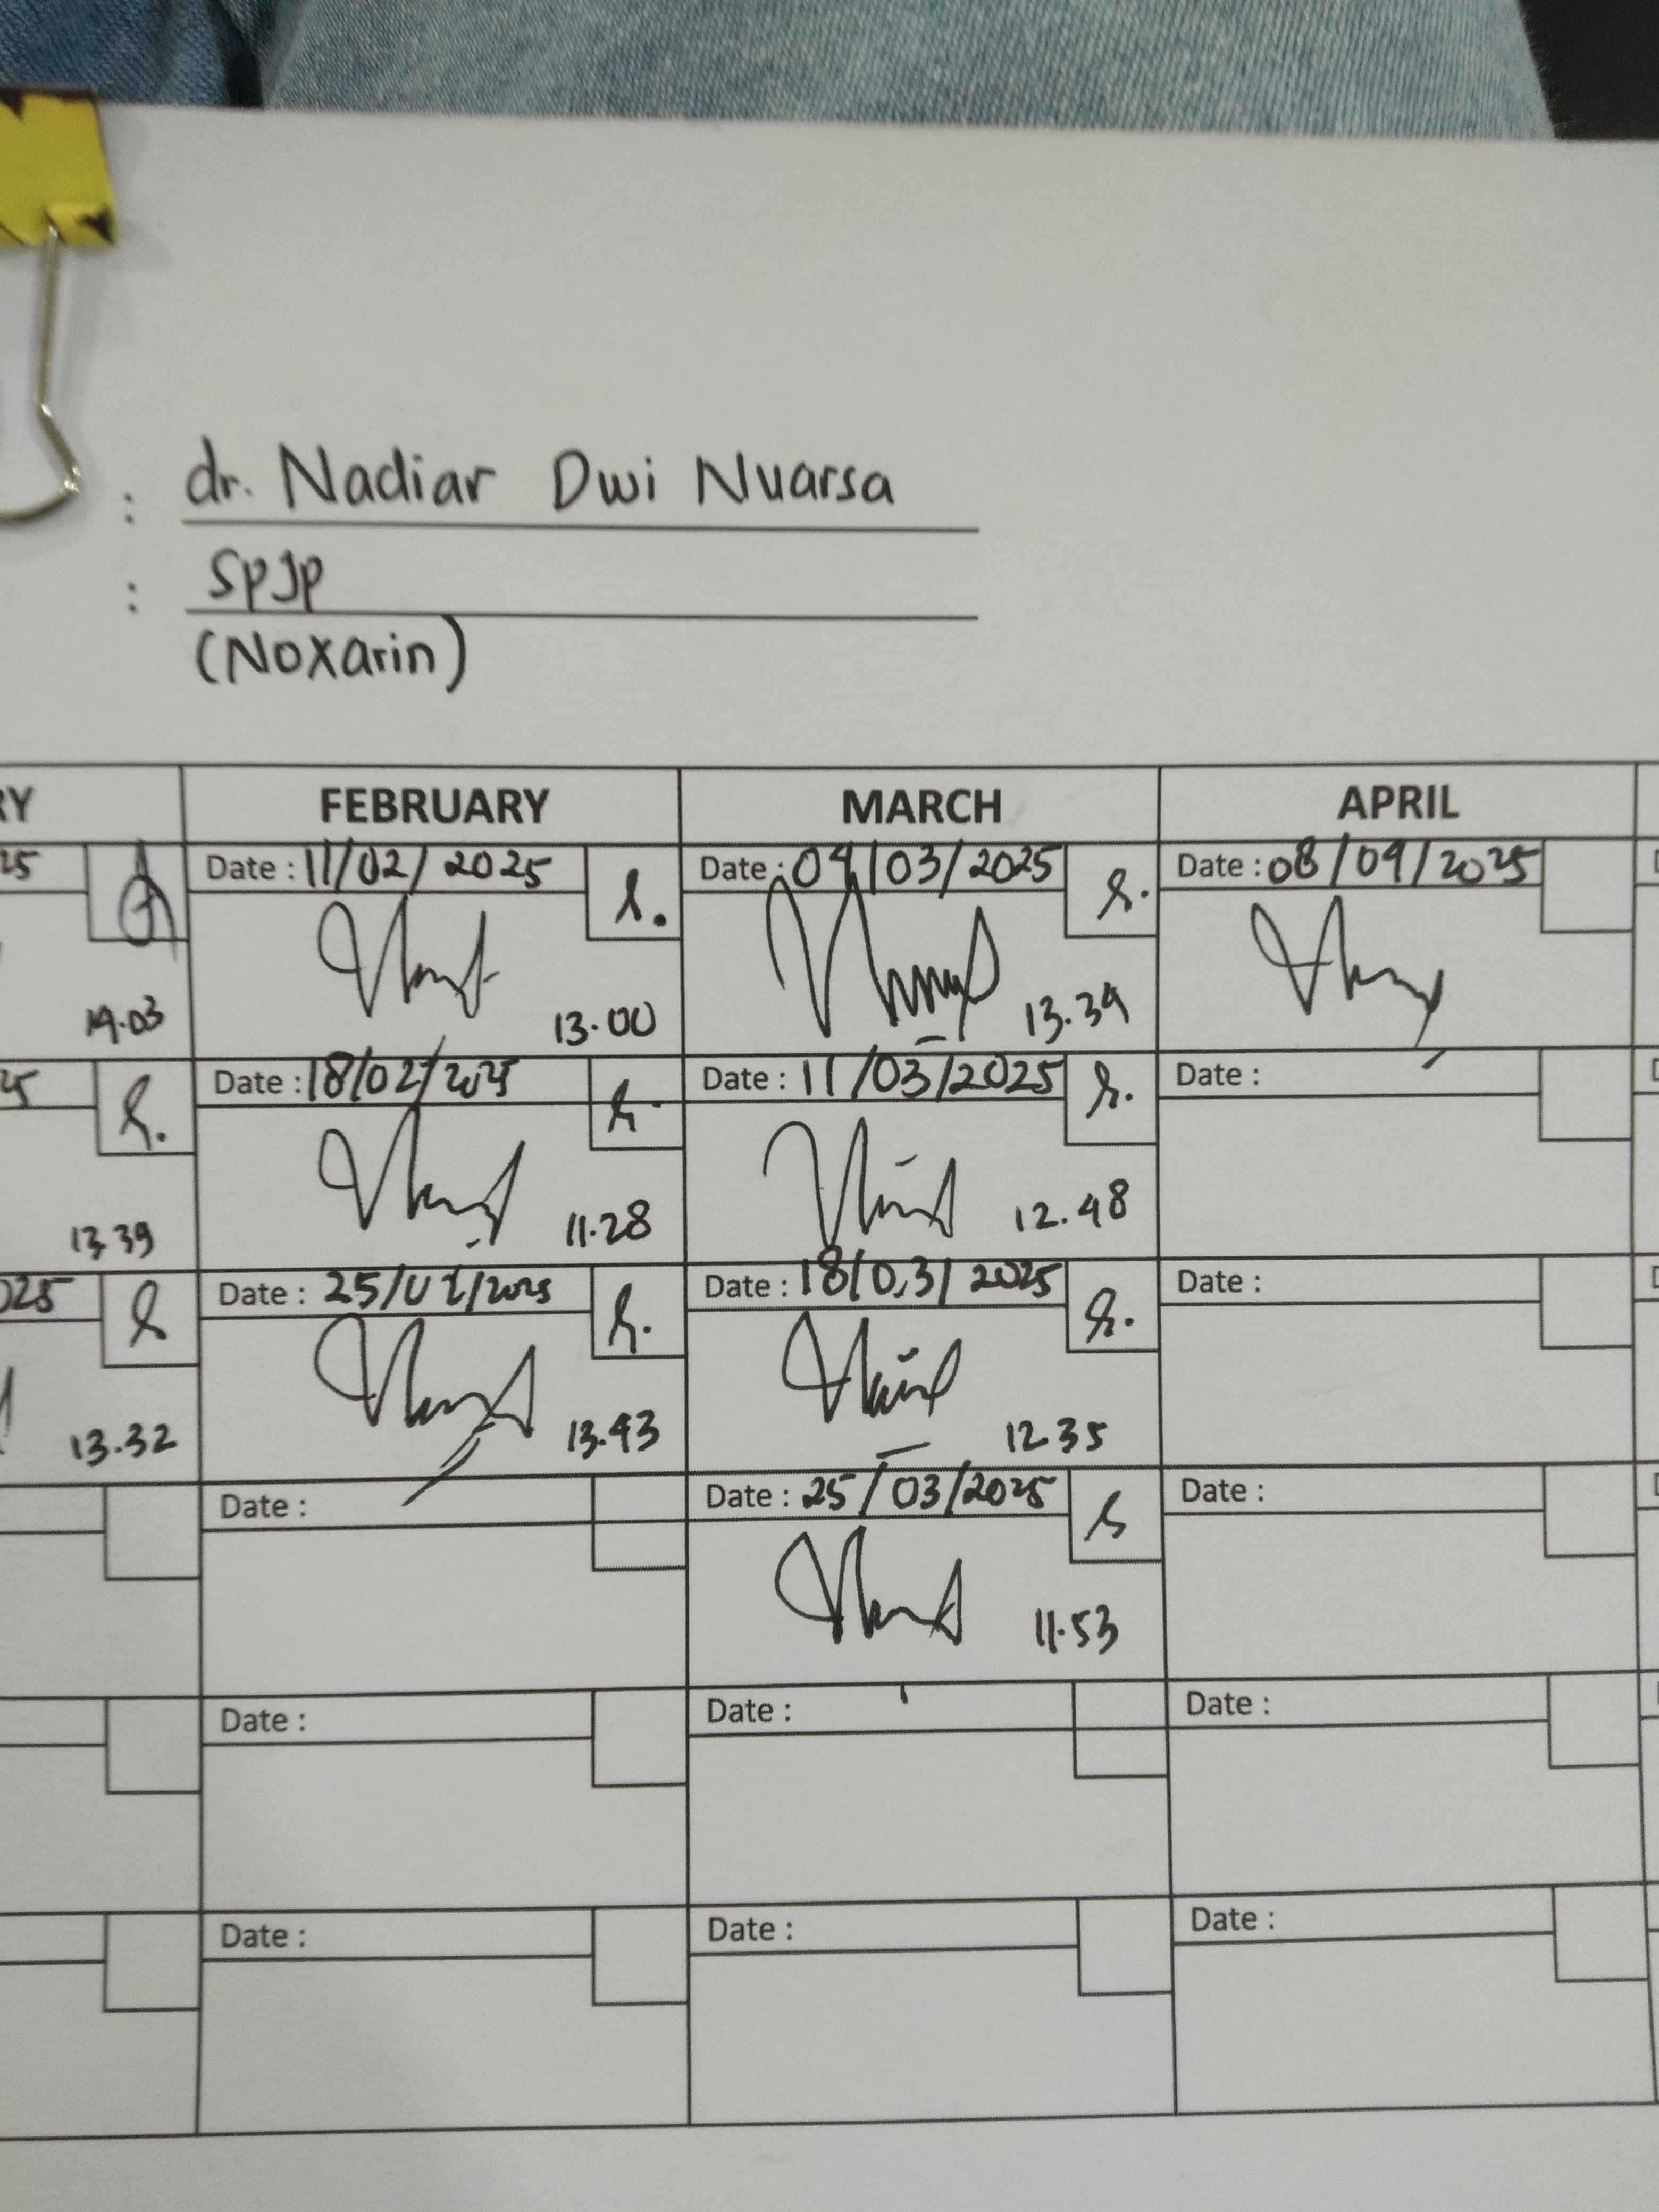 : dr. Nadiar Dwi Nuarsa
: SpJP
(Noxarin)
RY FEBRUARY MARCH APRIL
25 Date : 11/02/2025 Date : 04/03/2025 Date : 08/04/2025
14.03 13.00 13.34
25 Date : 18/02/2025 Date : 11/03/2025 Date :
13.39 11.28 12.48
025 Date : 25/02/2025 Date : 18/03/2025 Date :
13.32 13.43 12.35
Date : Date : 25/03/2025 Date :
11.53
Date : Date : Date :
Date : Date : Date :